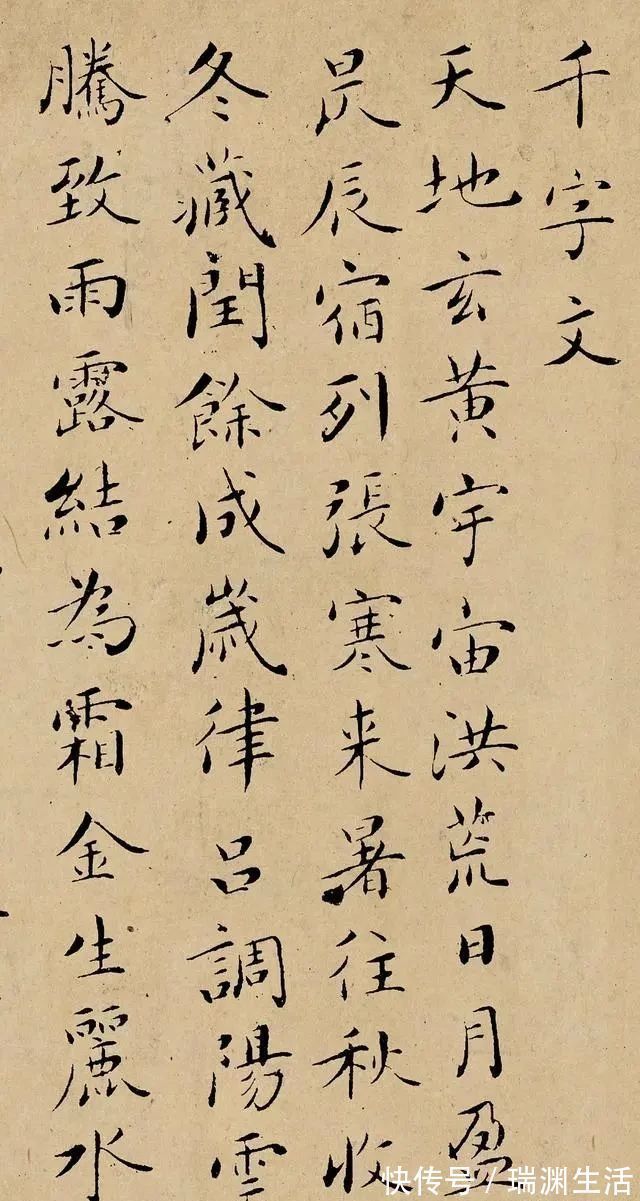 千字文
天地玄黃宇宙洪荒日月盈
昃辰宿列張寒来暑往秋收
冬藏閏餘成歲律呂調陽雲
騰致雨露結為霜金生麗水
快传号/瑞渊生活